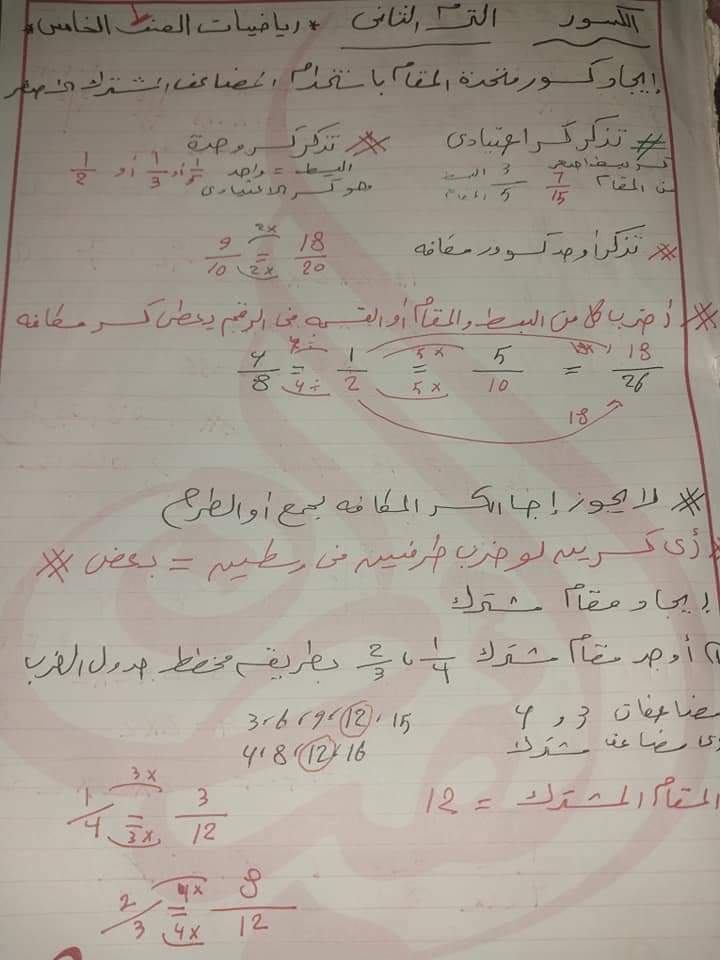 الكسور الترم الثانى * رياضيات الصف الخامس *
إيجاد كسور متحدة المقام باستخدام المضاعف المشترك الأصغر
# تذكر كسر اعتيادى
كسر بسطه اصغر من المقام 7/15 3/5 البسط المقام
# تذكر كسر وحدة
البسط = واحد 1/5 أو 1/3 أو 1/2
وهو كسر الاعتيادى
* تذكر أوجد كسور مكافه 9/10 2x = 2x 18/20
# أضرب كلا من البسط والمقام أو القسمه فى الرقم يعطى كسر مكافه
4/8 4÷ = 4÷ 1/2 5x = 5x 5/10 = 18/26
18
# لا يجوز إجا الكسر المكافه بجمع أو الطرح
أى كسرين لو ضرب طرفين فى وسطين = بعض #
إيجاد مقام مشترك
أوجد مقام مشترك 1/4 ، 2/3 بطريقه مخطط جدول الضرب
مضاعفات 3 و 4 3، 6، 9، 12، 15
مضاعف مشترك 4، 8، 12، 16
المقام المشترك = 12
1/4 3x = 3x 3/12
2/3 4x = 4x 8/12